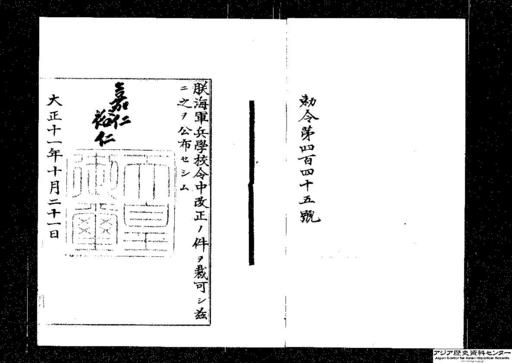 勅令第四百四十五號
朕海軍兵學校令中改正ノ件ヲ裁可シ茲
ニ之ヲ公布セシム
嘉仁
裕仁
天皇
御璽
大正十一年十月二十一日
アジア歴史資料センター
Japan Center for Asian Historical Records